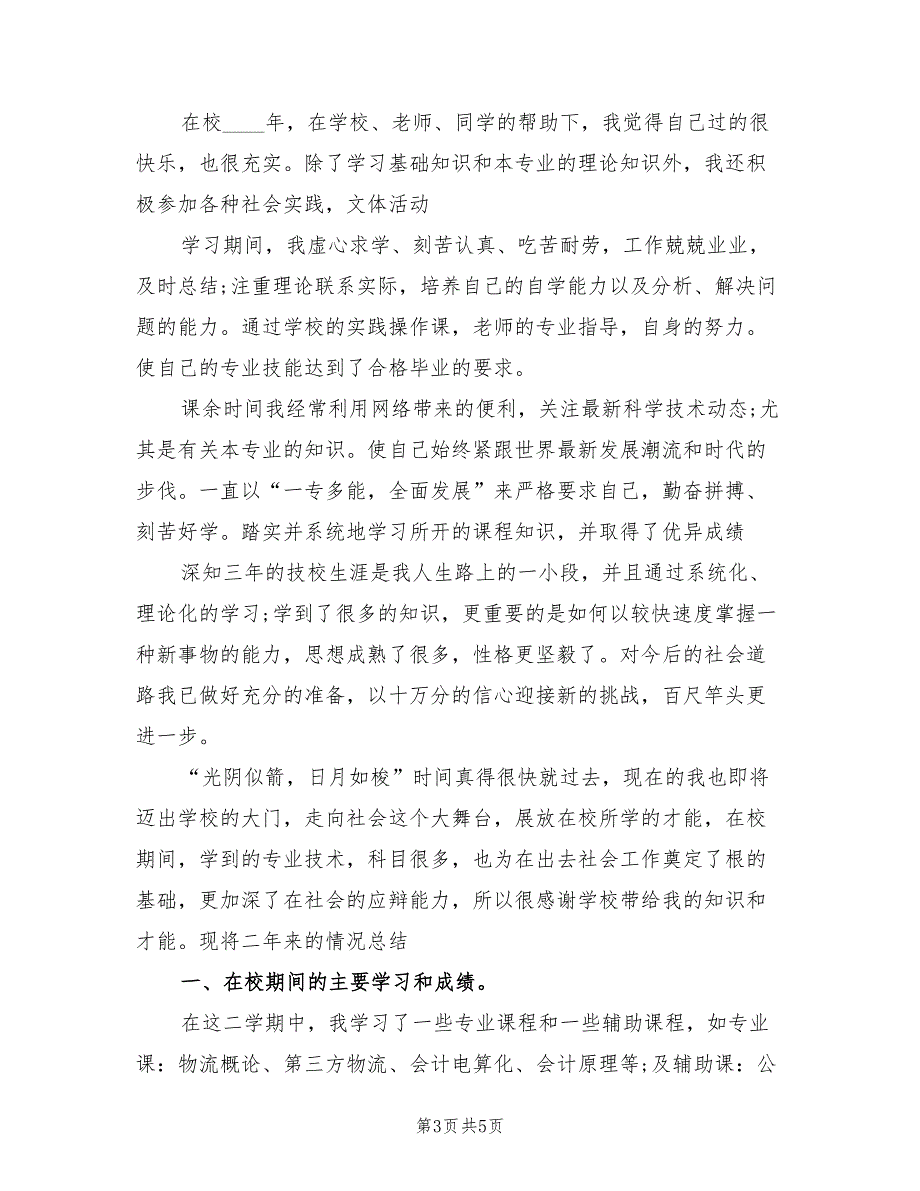 在校____年，在学校、老师、同学的帮助下，我觉得自己过的很
快乐，也很充实。除了学习基础知识和本专业的理论知识外，我还积
极参加各种社会实践，文体活动
学习期间，我虚心求学、刻苦认真、吃苦耐劳，工作兢兢业业，
及时总结;注重理论联系实际，培养自己的自学能力以及分析、解决问
题的能力。通过学校的实践操作课，老师的专业指导，自身的努力。
使自己的专业技能达到了合格毕业的要求。
课余时间我经常利用网络带来的便利，关注最新科学技术动态;尤
其是有关本专业的知识。使自己始终紧跟世界最新发展潮流和时代的
步伐。一直以“一专多能，全面发展”来严格要求自己，勤奋拼搏、
刻苦好学。踏实并系统地学习所开的课程知识，并取得了优异成绩
深知三年的技校生涯是我人生路上的一小段，并且通过系统化、
理论化的学习;学到了很多的知识，更重要的是如何以较快速度掌握一
种新事物的能力，思想成熟了很多，性格更坚毅了。对今后的社会道
路我已做好充分的准备，以十万分的信心迎接新的挑战，百尺竿头更
进一步。
“光阴似箭，日月如梭”时间真得很快就过去，现在的我也即将
迈出学校的大门，走向社会这个大舞台，展放在校所学的才能，在校
期间，学到的专业技术，科目很多，也为在出去社会工作奠定了根的
基础，更加深了在社会的应辩能力，所以很感谢学校带给我的知识和
才能。现将二年来的情况总结
一、在校期间的主要学习和成绩。
在这二学期中，我学习了一些专业课程和一些辅助课程，如专业
课：物流概论、第三方物流、会计电算化、会计原理等;及辅助课：公
第3页共5页